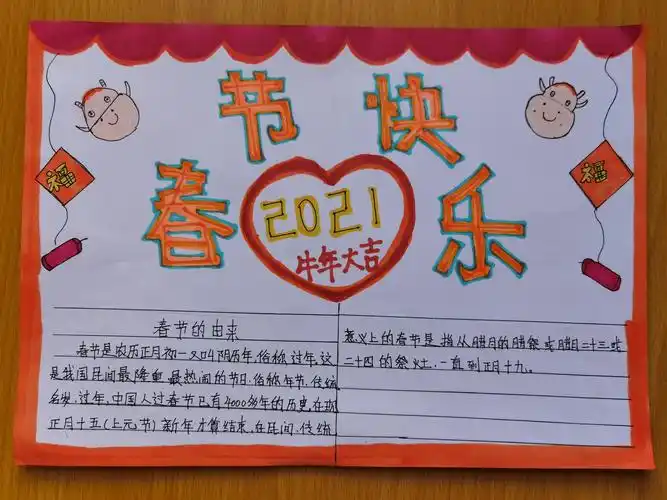 春节快乐
福
福
2021
牛年大吉
春节的由来
春节是农历正月初一又叫阴历年,俗称过年,这
是我国民间最隆重最热闹的节日.俗称年节,传统
名岁,过年,中国人过春节已有4000多年的历史,在现
正月十五(上元节)新年才算结束,在民间.传统
意义上的春节是指从腊月的腊祭或腊月二十三或
二十四的祭灶.一直到正月十九。